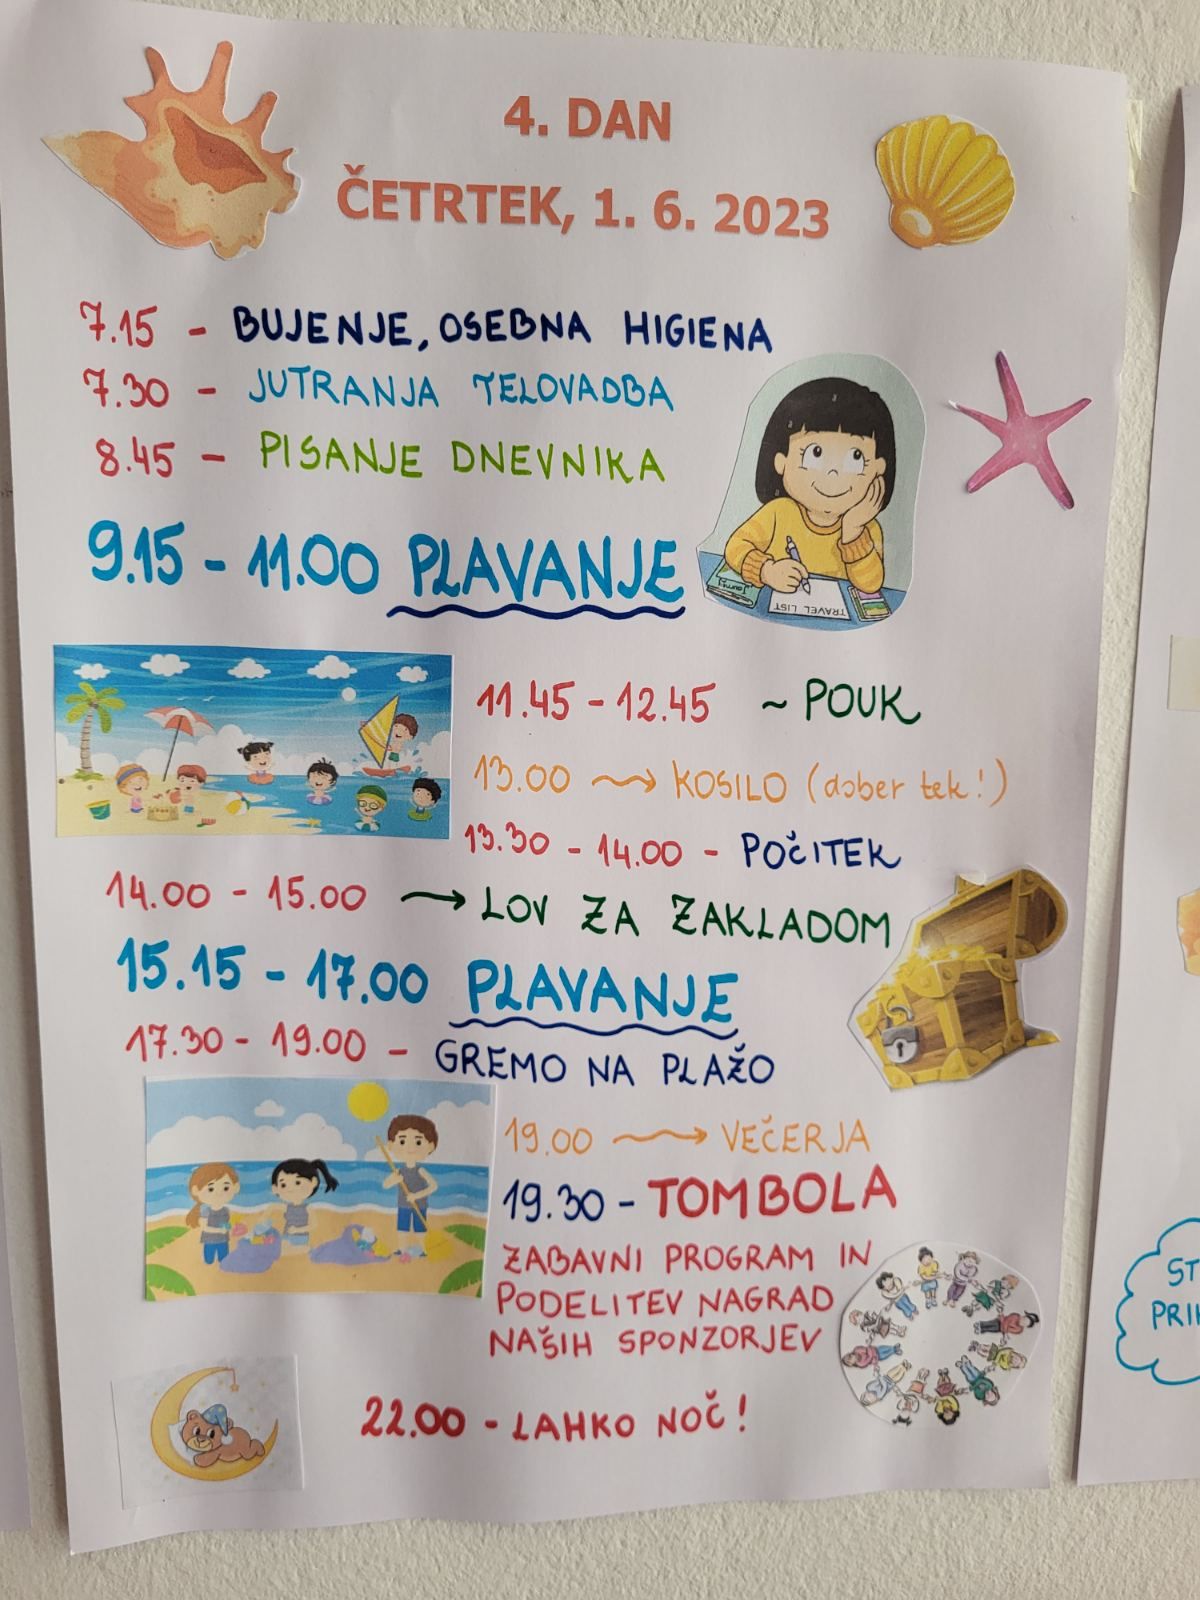 4. DAN
ČETRTEK, 1. 6. 2023
7.15 - BUJENJE, OSEBNA HIGIENA
7.30 - JUTRANJA TELOVADBA
8.45 - PISANJE DNEVNIKA
9.15 - 11.00 PLAVANJE
Journey
TRAVEL LIST
11.45 - 12.45 ~ POUK
13.00 → KOSILO (dober tek!)
13.30 - 14.00 - POČITEK
14.00 - 15.00 → LOV ZA ZAKLADOM
15.15 - 17.00 PLAVANJE
17.30 - 19.00 - GREMO NA PLAŽO
19.00 → VEČERJA
19.30 - TOMBOLA
ZABAVNI PROGRAM IN
PODELITEV NAGRAD
NAŠIH SPONZORJEV
22.00 - LAHKO NOČ!